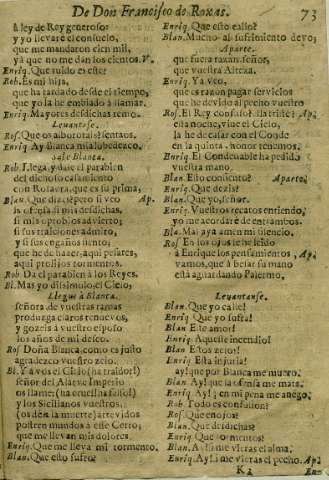 De Don Francisco de Roxas. 73
à ley de Rey generoso:
y yo llevarè el consuelo,
que me mandaron cien mil,
ya que no me dan los cientos. V.
Enriq. Que ruido es este?
Rob. Es mi hija,
que ha tardado desde el tiempo,
que yo la he embiado à llamar.
Enriq. Mayores desdichas temo.
Levantase.
Ros. Que os alborota? sentaos.
Enriq Ay Blanca
Sale Blanca.
Rob. Llega, y dale el parabien
del dichoso casamiento
con Rosaura, que es su prima,
Blan. Que dize, pero si veo Ap.
la ofensa si mis desdichas,
si mis oprobios advierto;
si sus traiciones admiro,
y si sus engaños siento,
que he de hazer, aqui pesares,
aqui prolijos tormentos.
Rob. Da el parabien à los Reyes.
Bl. Mas yo dissimulo, el Cielo,
Llegue à Blanca.
señora, de vuestras ramas
produzga claros renuevos,
y gozeis à vuestro esposo
los años de mi deseo.
Ros Doña Blanca, como es justo
agradezco vuestro zelo.
Bl. Y à vos el Cielo (ha traidor!)
señor del Imperio
os llame: (ha cruel! ha falso!)
y los Sicilianos vuestros,
(os den la muerte) atrevidos
postren mundos à este Cetro;
que me llevan mis dolores.
Enriq. Que me lleva mi tormento.
Blan. Que esto sufro?
Enriq. Que esto callo?
Blan. Mucho al sufrimiento devo,
Aparte.
que fuera razon, señor,
que vuestra Alteza.
Enriq. Ya veo,
que es razon pagar servicios
que he devido al pecho vuestro
Rob. El Rey confuso! Ap.
esta noche, vive el Cielo,
la he de casar con el Conde
en la quinta. honor tenemos.
Enriq. El Condestable ha pedido
vuestra mano.
Blan. Esto consiente? Aparte.
Enriq. Que dezis?
Blan. Que yo, señor.
Enriq. Vuestros recatos entiendo,
yo me acordarè de entrambos.
Bla. Mal aya amen mi silencio.
Ros En los ojos le he leido
à Enrique los pensamientos, Ap.
vamos, que à besar su mano
està aguardando Palermo.
Levantanse.
Blan. Que yo calle!
Enriq. Que yo sufra!
Blan. Este amor!
Enriq. Aqueste incendio!
Blan Estos zelos!
Enriq. Esta injuria!
ay! que por Blanca me muero.
Blan. Ay! que la ofensa me mata.
Enriq. Ay! en mi pena me anego.
Rob. Todo es confusion!
Ros. Que enojos!
Blan. Que desdichas!
Enriq. Que tormentos!
Blan. Ay! si me vieras el alma.
Enriq. Ay! si me vieras el pecho. Ap.
K